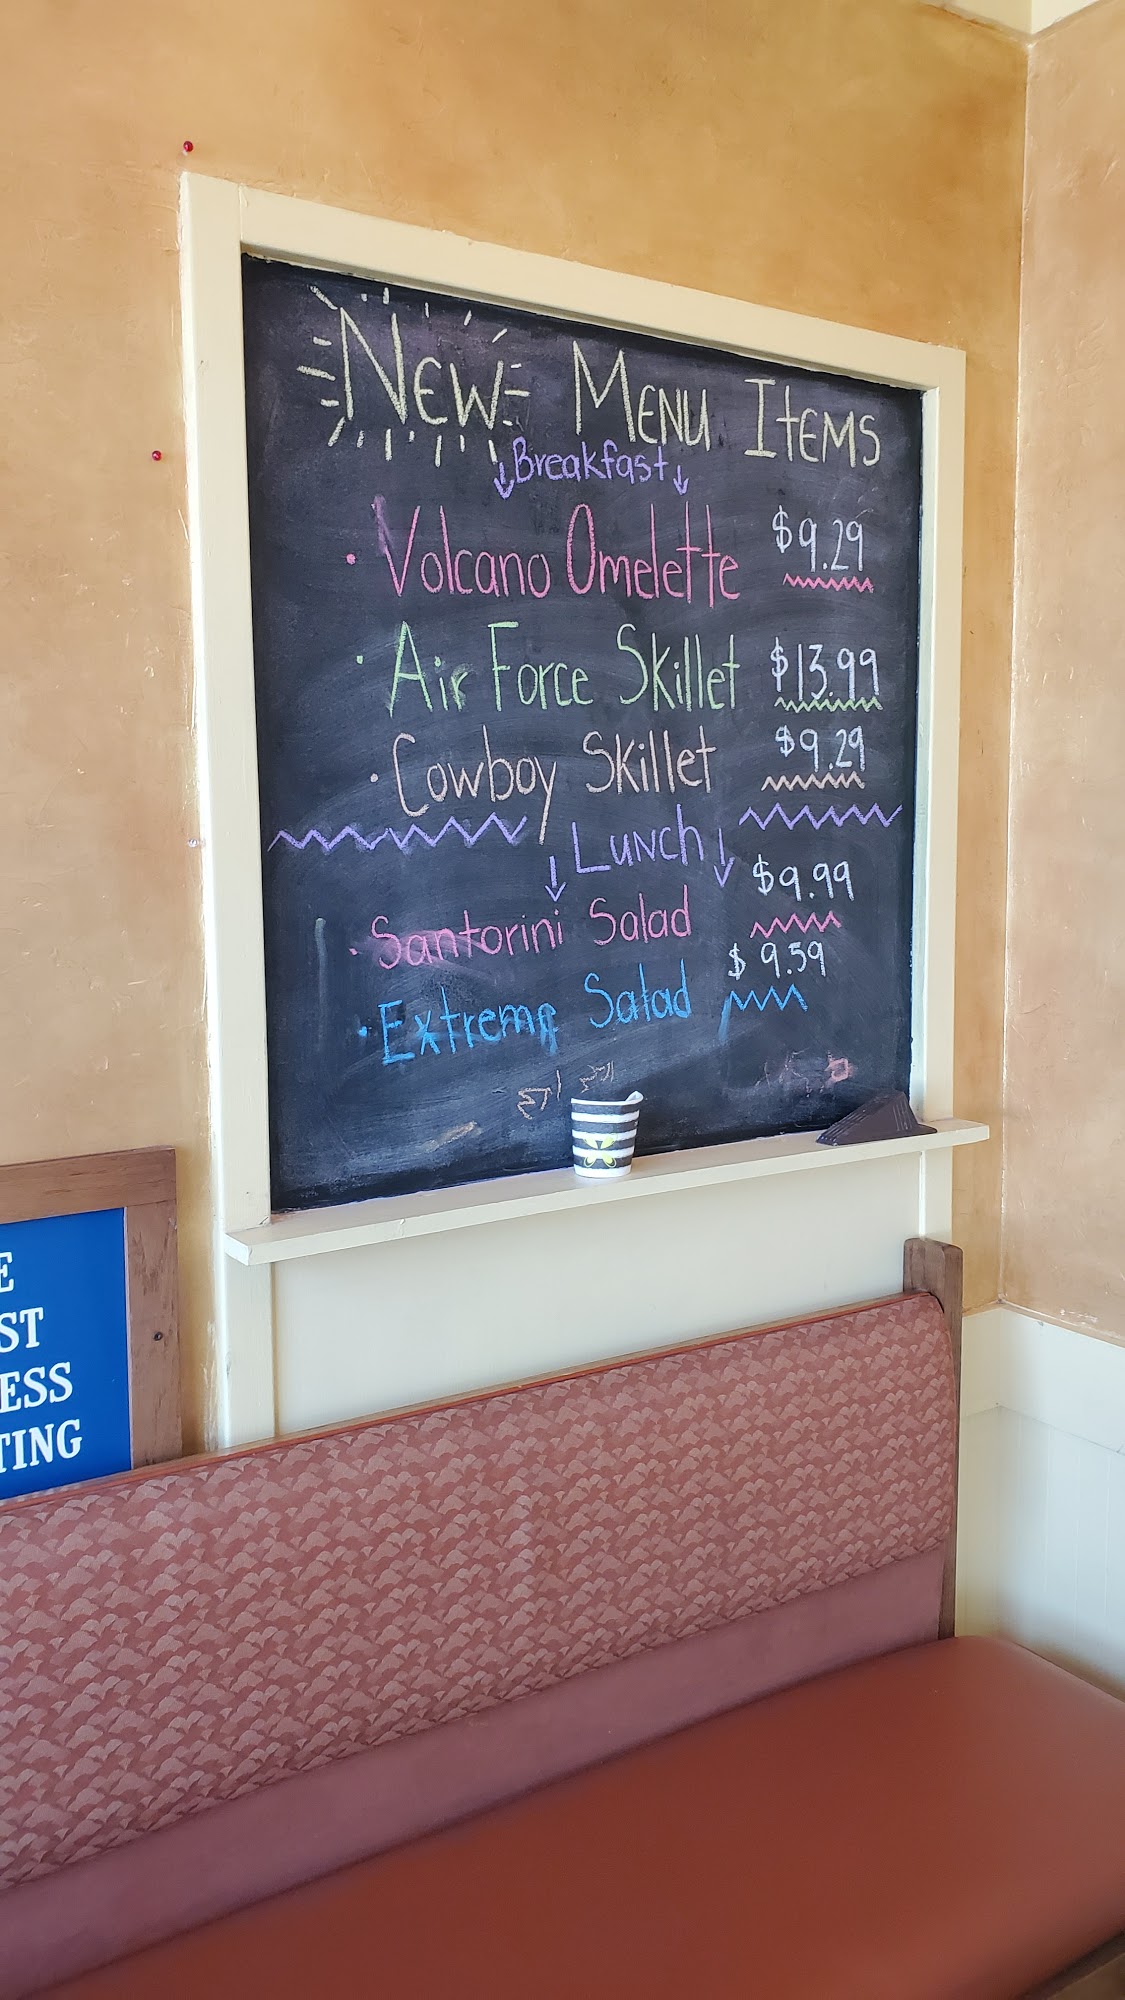 New Menu Items
Breakfast
· Volcano Omelette $9.29
· Air Force Skillet $13.99
· Cowboy Skillet $9.29
Lunch
· Santorini Salad $9.99
· Extreme Salad $9.59
E
ST
ESS
TING